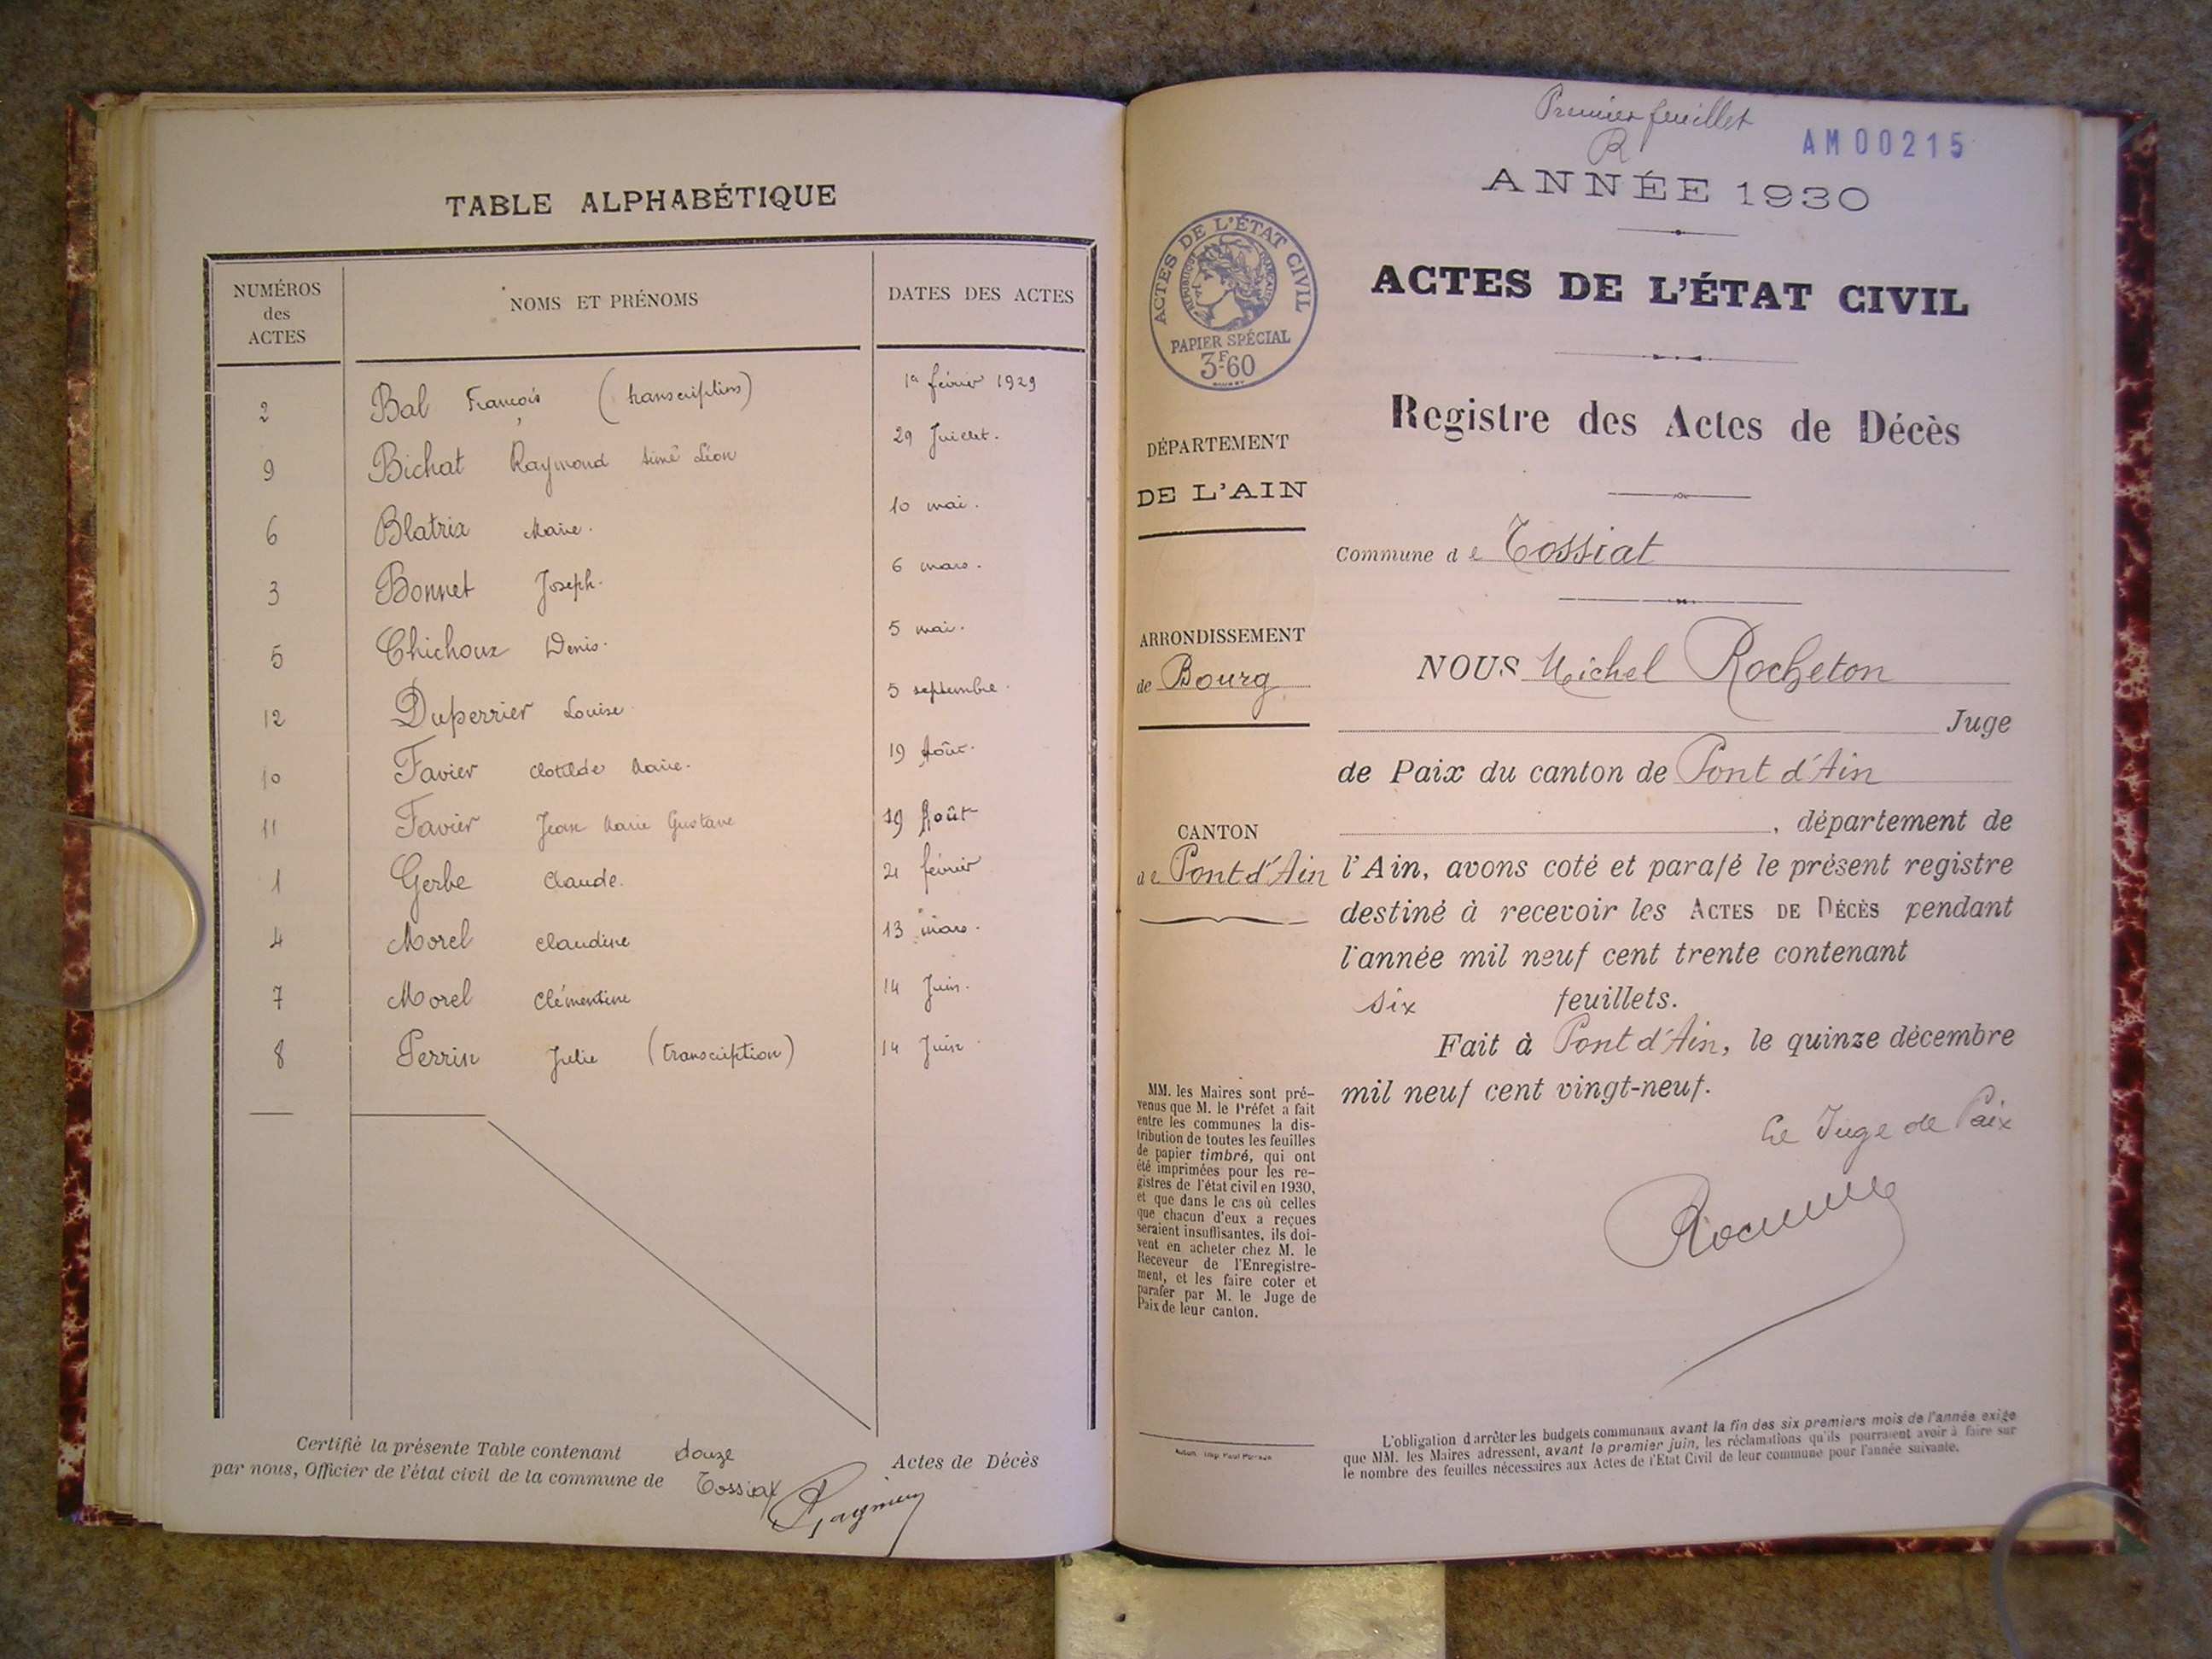 TABLE ALPHABÉTIQUE
NUMÉROS des ACTES NOMS ET PRÉNOMS DATES DES ACTES
2 Bal François (transcription) 1er février 1929
9 Bichat Raymond Aimé Léon 29 Juillet.
6 Blatrix Marie. 10 mai.
3 Bonnet Joseph. 6 mars.
5 Chichoux Denis. 5 mai.
12 Duperrier Louise 5 septembre.
10 Favier Clotilde Marie. 19 Août.
11 Favier Jean Marie Gustave 19 Août
1 Gerbe Claude. 21 février
4 Morel Claudine 13 mars.
7 Morel Clémentine 14 Juin.
8 Perrin Julie (transcription) 14 Juin
Certifié la présente Table contenant douze Actes de Décès
par nous, Officier de l'état civil de la commune de Tossiat
Premier feuillet
R
AM00215
ANNÉE 1930
ACTES DE L'ÉTAT CIVIL
RÉPUBLIQUE FRANÇAISE
PAPIER SPÉCIAL
3F.60
ACTES DE L'ÉTAT CIVIL
Registre des Actes de Décès
DÉPARTEMENT
DE L'AIN
Commune de Tossiat
ARRONDISSEMENT
de Bourg
CANTON
de Pont d'Ain
NOUS Michel Rocheton
Juge
de Paix du canton de Pont d'Ain
, département de
l'Ain, avons coté et parafé le présent registre
destiné à recevoir les ACTES DE DÉCÈS pendant
l'année mil neuf cent trente contenant
six feuillets.
Fait à Pont d'Ain, le quinze décembre
mil neuf cent vingt-neuf.
Le Juge de Paix
MM. les Maires sont pré-
venus que M. le Préfet a fait
entre les communes la dis-
tribution de toutes les feuilles
de papier timbré, qui ont
été imprimées pour les re-
gistres de l'état civil en 1930,
et que dans le cas où celles
que chacun d'eux a reçues
seraient insuffisantes, ils doi-
vent en acheter chez M. le
Receveur de l'Enregistre-
ment, et les faire coter et
parafer par M. le Juge de
Paix de leur canton.
L'obligation d'arrêter les budgets communaux avant la fin des six premiers mois de l'année exige
que MM. les Maires adressent, avant le premier juin, les réclamations qu'ils pourraient avoir à faire sur
le nombre des feuilles nécessaires aux Actes de l'Etat Civil de leur commune pour l'année suivante.